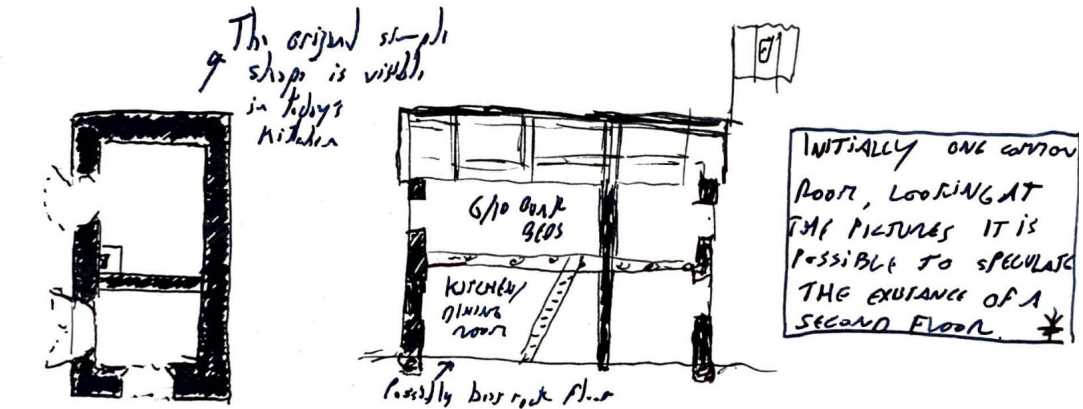 The original simple
shape is visible
in today's
kitchen
6/10 BUNK
BEDS
KITCHEN/
DINING
ROOM
Possibly bare rock floor
INITIALLY ONE COMMON
ROOM, LOOKING AT
THE PICTURES IT IS
POSSIBLE TO SPECULATE
THE EXISTANCE OF A
SECOND FLOOR.